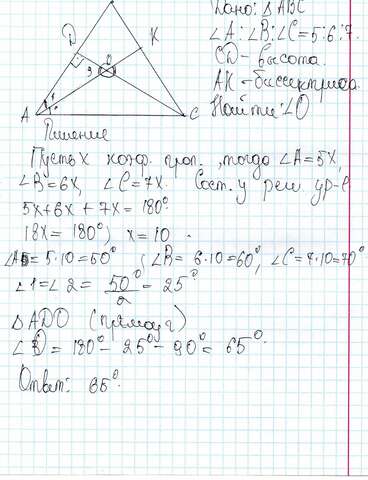 Дано: Δ ABC
∠A : ∠B : ∠C = 5 : 6 : 7.
CD - высота.
AK - биссектриса.
Найти: ∠O
D K O 3 1 2 A C
Решение
Пусть x коэф. проп., тогда ∠A = 5x,
∠B = 6x, ∠C = 7x. Сост. и реш. ур-е
5x + 6x + 7x = 180°
18x = 180°; x = 10.
∠A = 5·10 = 50°; ∠B = 6·10 = 60°, ∠C = 7·10 = 70°
∠1 = ∠2 = 50°/2 = 25°
Δ ADO (прямоуг)
∠3 = 180° - 25° - 90° = 65°.
Ответ: 65°.